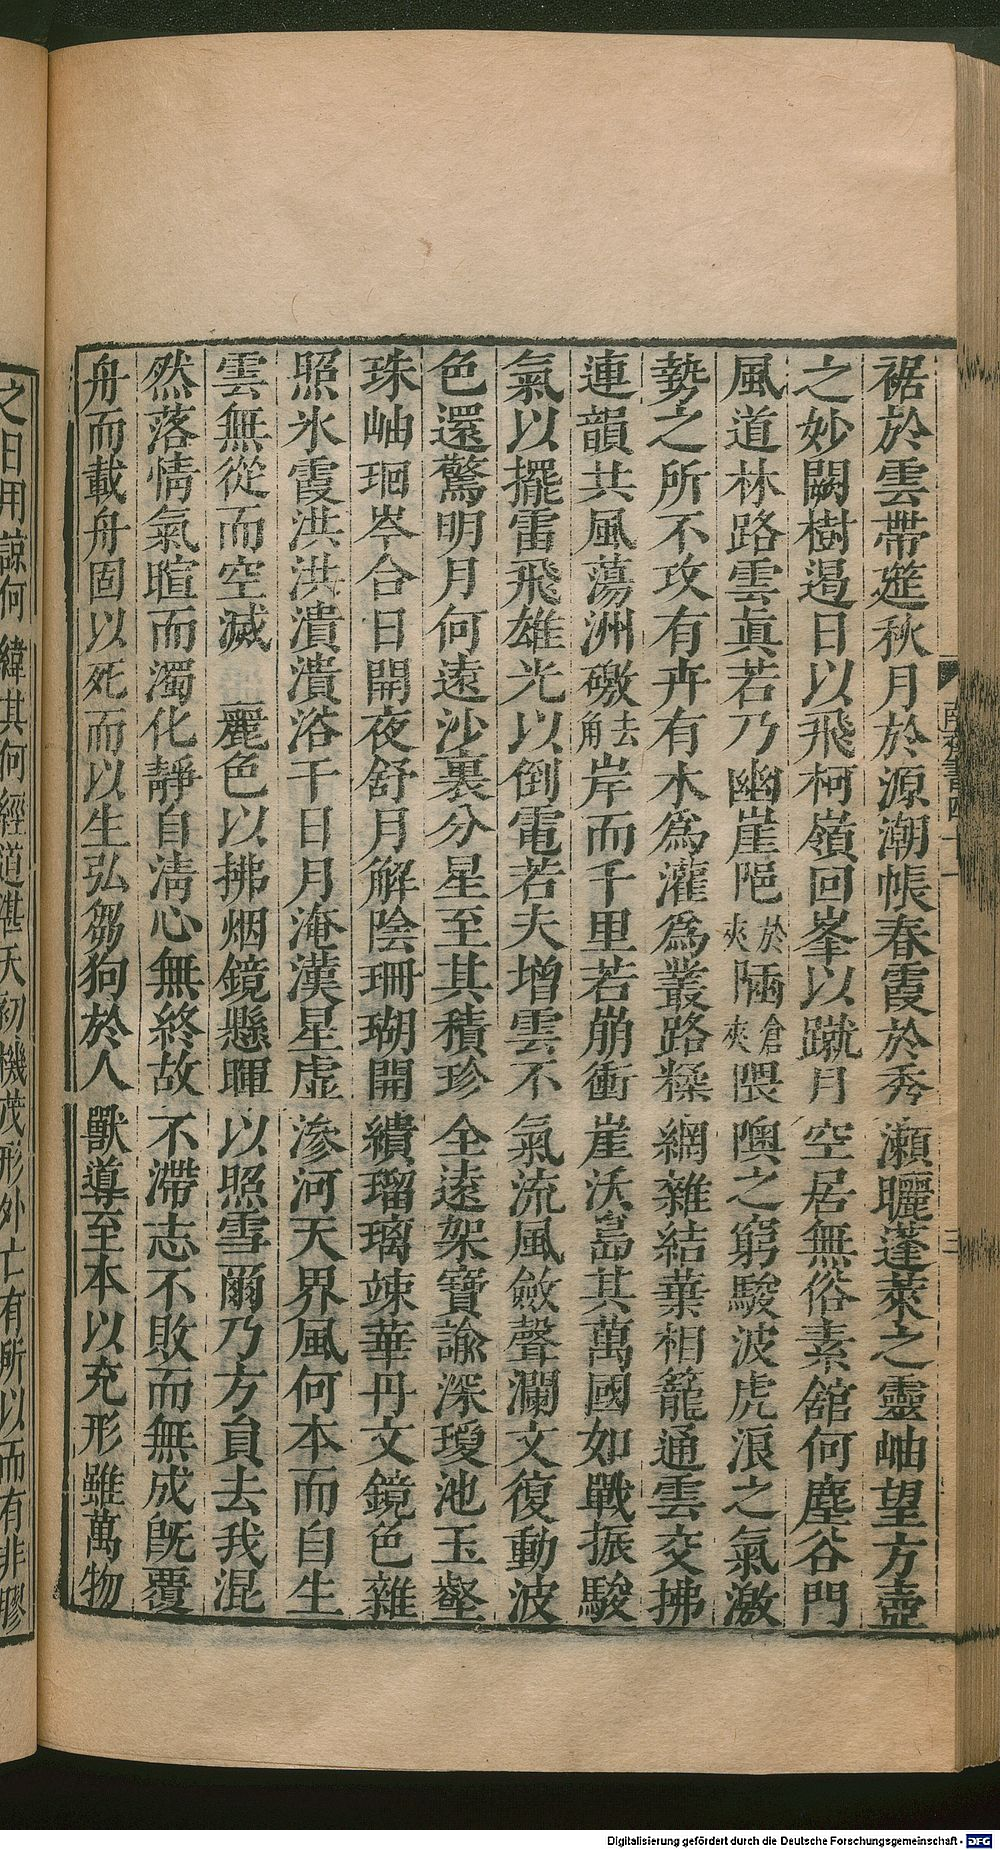 裾於雲帶筵秋月於源潮帳春霞於秀瀬曬蓬萊之靈岫望方壺
之妙闕樹遏日以飛柯嶺回峯以蹴月空居無俗素舘何塵谷門
風道林路雲眞若乃幽崖𨹟於夾陋倉夾隈隩之窮駿波虎浪之氣激
勢之所不攻有卉有木爲灌爲叢路糅網雜結葉相籠通雲交拂
連韻共風蕩洲礉去角岸而千里若崩衝崖沃島其萬國如戰振駿
氣以擺雷飛雄光以倒電若夫增雲不氣流風斂聲瀾文復動波
色還驚明月何遠沙裏分星至其積珍全遠架寶諭深瓊池玉壑
珠岫珚岑合日開夜舒月解陰珊瑚開繢瑠璃竦華丹文鏡色雜
照氷霞洪洪潰潰浴干日月淹漢星虛滲河天界風何本而自生
雲無從而空滅 麗色以拂烟鏡懸暉以照雪爾乃方負去我混
然落情氣暄而濁化靜自淸心無終故不滯志不敗而無成旣覆
舟而載舟固以死而以生弘芻狗於人獸導至本以充形雖萬物
之日用諒何緯其何經道湛天初機茂形外亡有所以而有非膠
南齊書四十一
三
Digitalisierung gefördert durch die Deutsche Forschungsgemeinschaft - DFG